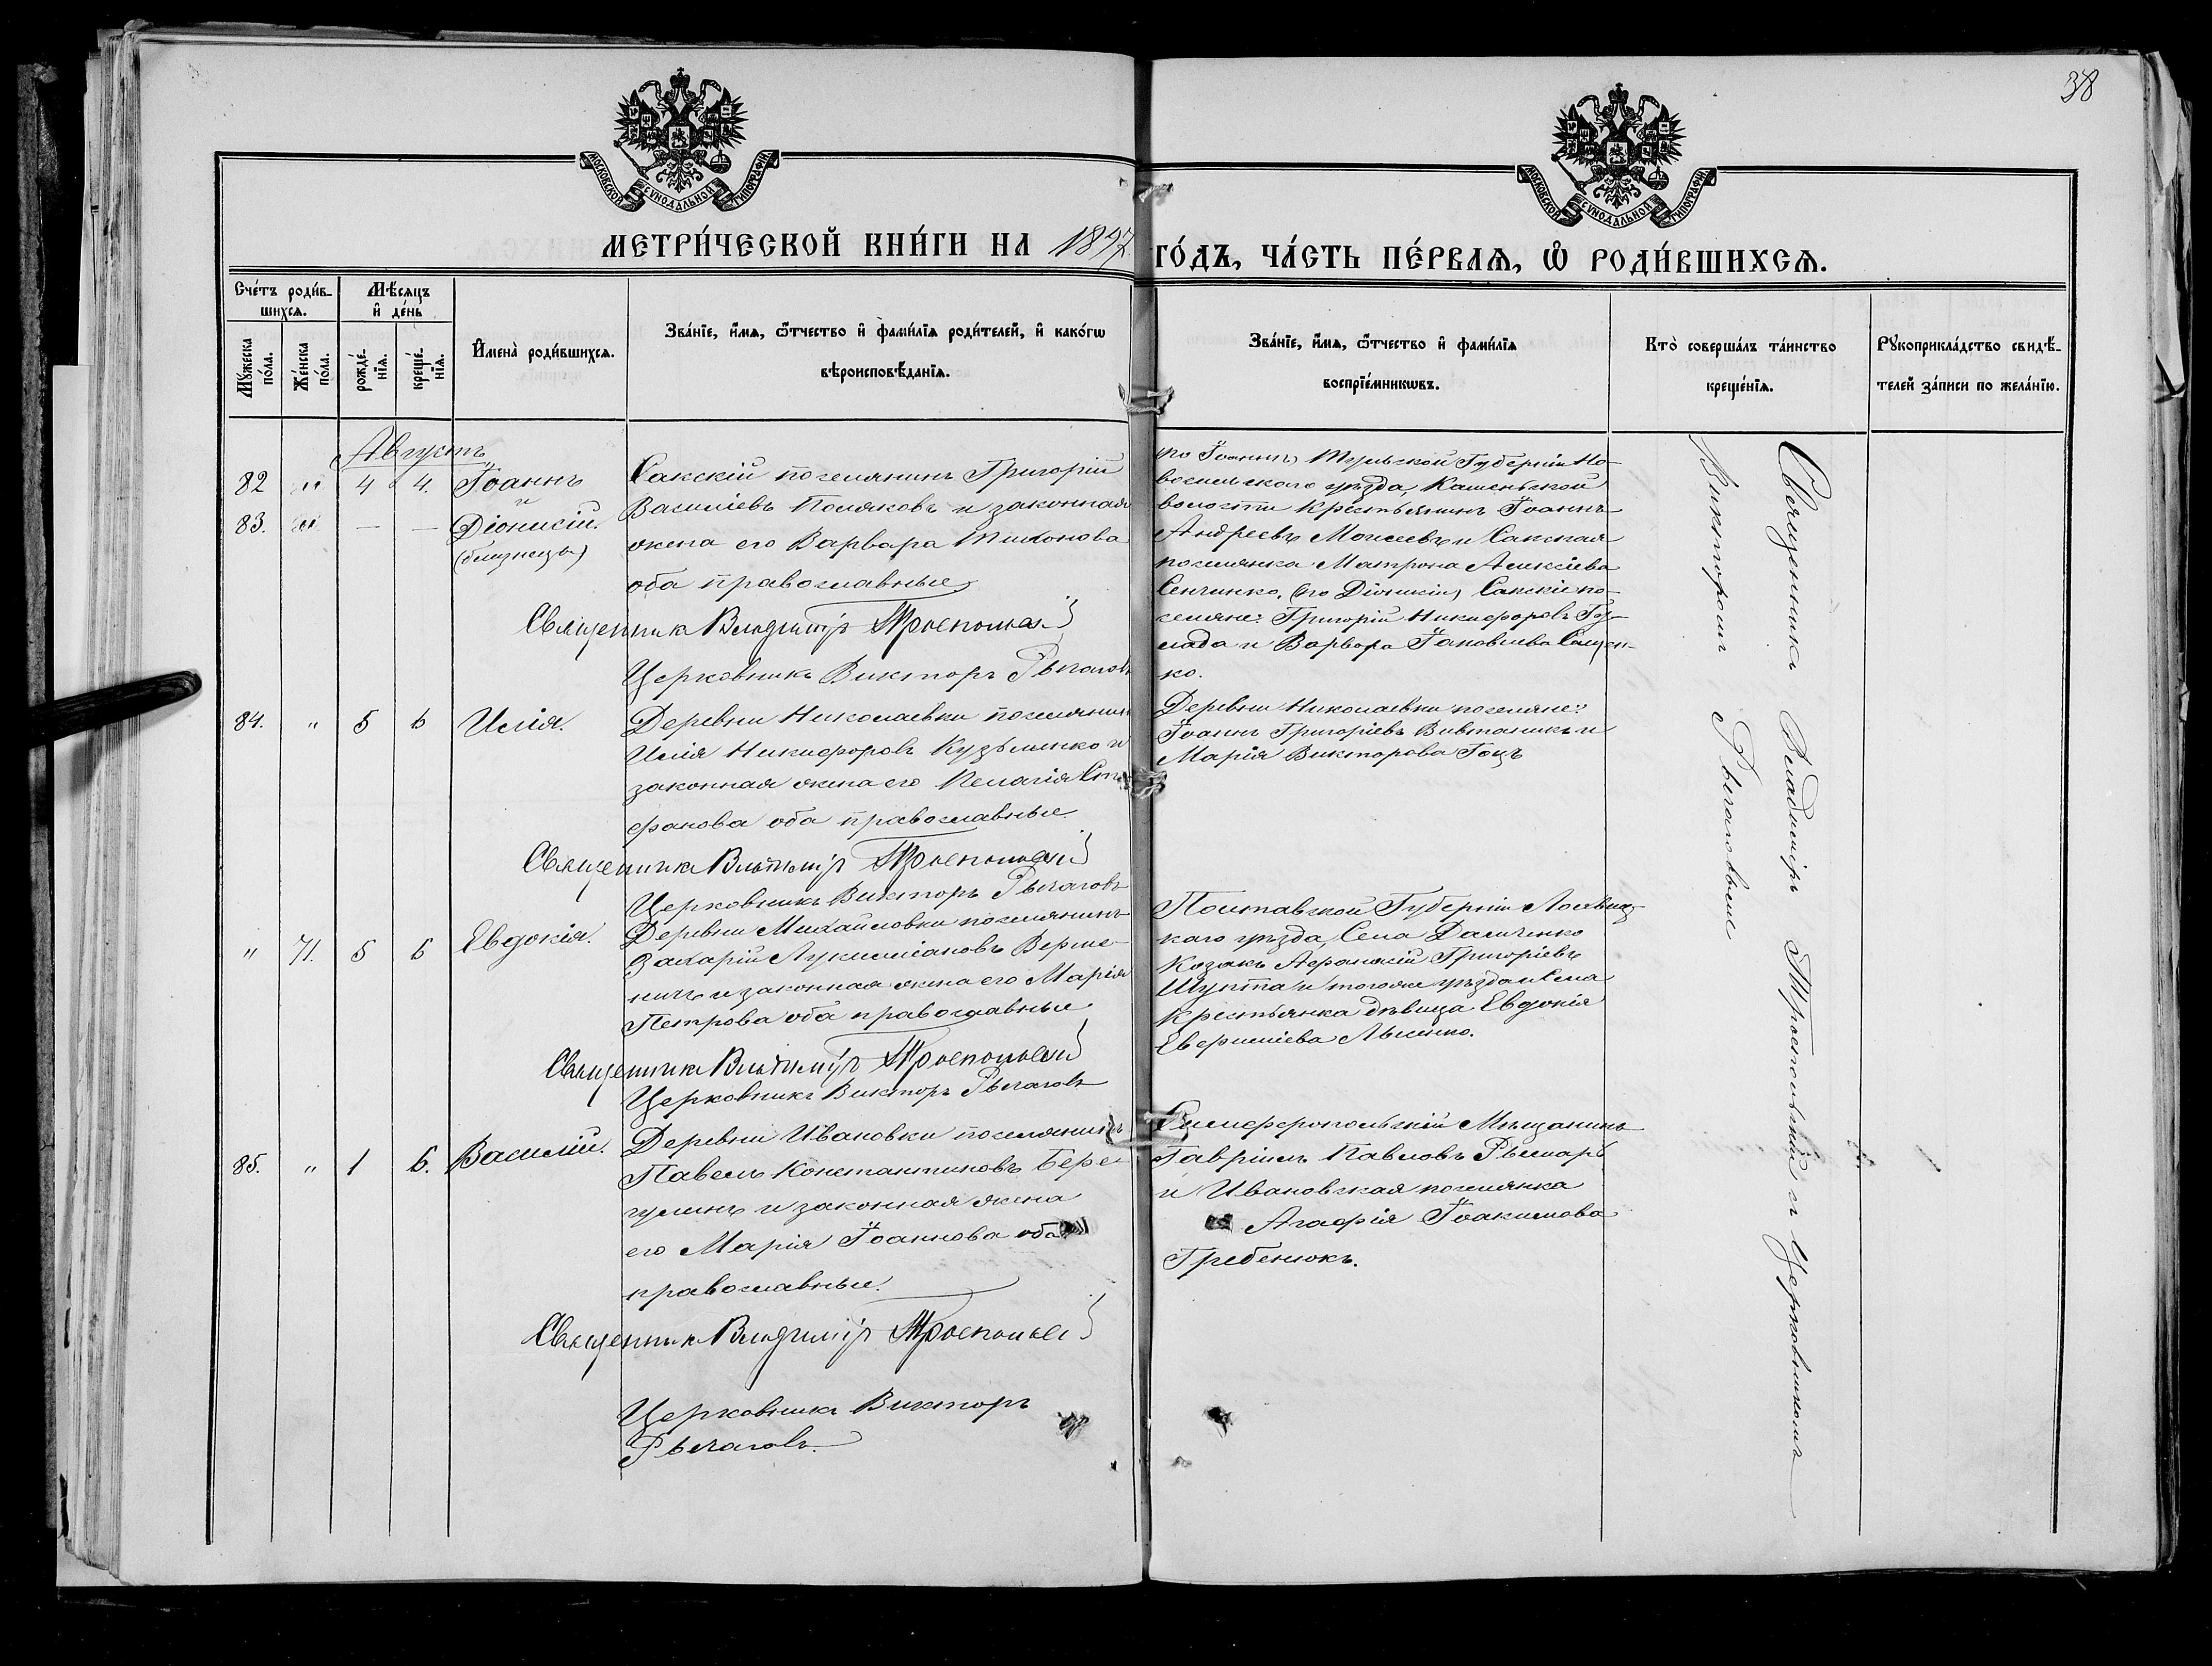 38
МОСКОВСКОЙ СѴНОДАЛЬНОЙ ТИПОГРАФІИ
МОСКОВСКОЙ СѴНОДАЛЬНОЙ ТИПОГРАФІИ
МЕТРИ́ЧЕСКОЙ КНИ́ГИ НА 1897 ГО́ДЪ, ЧА́СТЬ ПЕ́РВАѦ, Ѡ҆ РОДИ́ВШИХСѦ.
Сче́тъ роди́в-
шихсѧ.
Мꙋ́жеска по́ла.
Же́нска по́ла.
Мѣ́сяцъ
и҆ де́нь
рожде́-
нїѧ.
креще́-
нїѧ.
И҆мена̀ роди́вшихсѧ.
Зва́нїе, и҆́мѧ, ѻ҆́тчество и҆ фами́лїѧ роди́телей, и҆ како́гѡ
вѣроисповѣ́данїѧ.
Зва́нїе, и҆́мѧ, ѻ҆́тчество и҆ фами́лїѧ
воспрїе́мникѡвъ.
Кто̀ соверша́лъ та́инство
креще́нїѧ.
Рꙋкоприкла́дство свидѣ́-
телей за́писи по жела́нїю.
Августъ
82 " 4 4. Іоаннъ
и
83. " — — Діонисій.
(близнецы)
Сакскій поселянинъ Григорій
Василіевъ Поляковъ и законная
жена его Варвара Тихонова
оба православные
Священникъ Владиміръ Троепольскій
Церковникъ Викторъ Рычаговъ
(по Іоаннѣ) Тульской Губерніи Но-
восильскаго уѣзда, Каменьской
волости крестьянинъ Іоаннъ
Андреевъ Моисеевъ и Сакская
поселянка Матрона Алексіева
Сенченко, (по Діонисіи) Сакскіе по-
селяне: Григорій Никифоровъ
и Варвара Іаковлева
ко.
84. " 5 6 Илія.
Деревни Николаевки поселянинъ
Илія Никифоровъ Кузьменко и
законная жена его Пелагія Сте-
фанова оба православные
Священникъ Владиміръ Троепольскій
Церковникъ Викторъ Рычаговъ
Деревни Николаевки поселяне:
Іоаннъ Григоріевъ и
Марія Викторова Гоцъ
" 71. 5 6 Евдокія.
Деревни Михайловки поселянинъ
Захарій Лукилліановъ Верме-
ничъ и законная жена его Марія
Петрова оба православные
Священникъ Владиміръ Троепольскій
Церковникъ Викторъ Рычаговъ
Полтавской Губерніи Лохвиц-
каго уѣзда, Села
Козакъ Аѳанасій Григоріевъ
Шупта и тогоже уѣзда и села
крестьянка дѣвица Евдокія
Лысенко.
85. " 1 6. Василій.
Деревни Ивановки поселянинъ
Павелъ Константиновъ Бере-
гулинъ и законная жена
его Марія Іоаннова оба
православные.
Священникъ Владиміръ Троепольскій
Церковникъ Викторъ
Рычаговъ.
Симферопольскій Мѣщанинъ
Гавріилъ Павловъ
и Ивановская поселянка
Агафія Іоакимова
Гребенюкъ.
Священникъ Владиміръ Троепольскій и Церковникомъ
Викторомъ Рычаговымъ